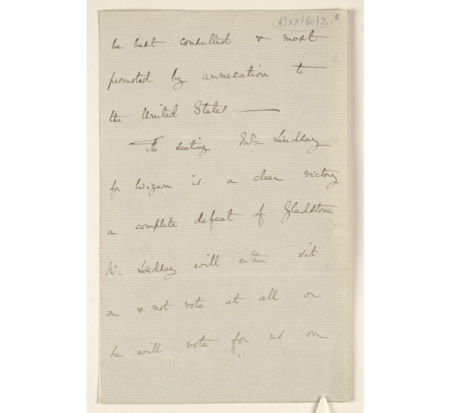 B/XX/Bo/2 5
be best consulted & most
promoted by annexation to
the United States. —
The seating Mr Lindsay
for Wigan is a clear victory
a complete defeat of Gladstone
Mr Lindsay will either sit
on & not vote at all or
he will vote for us on